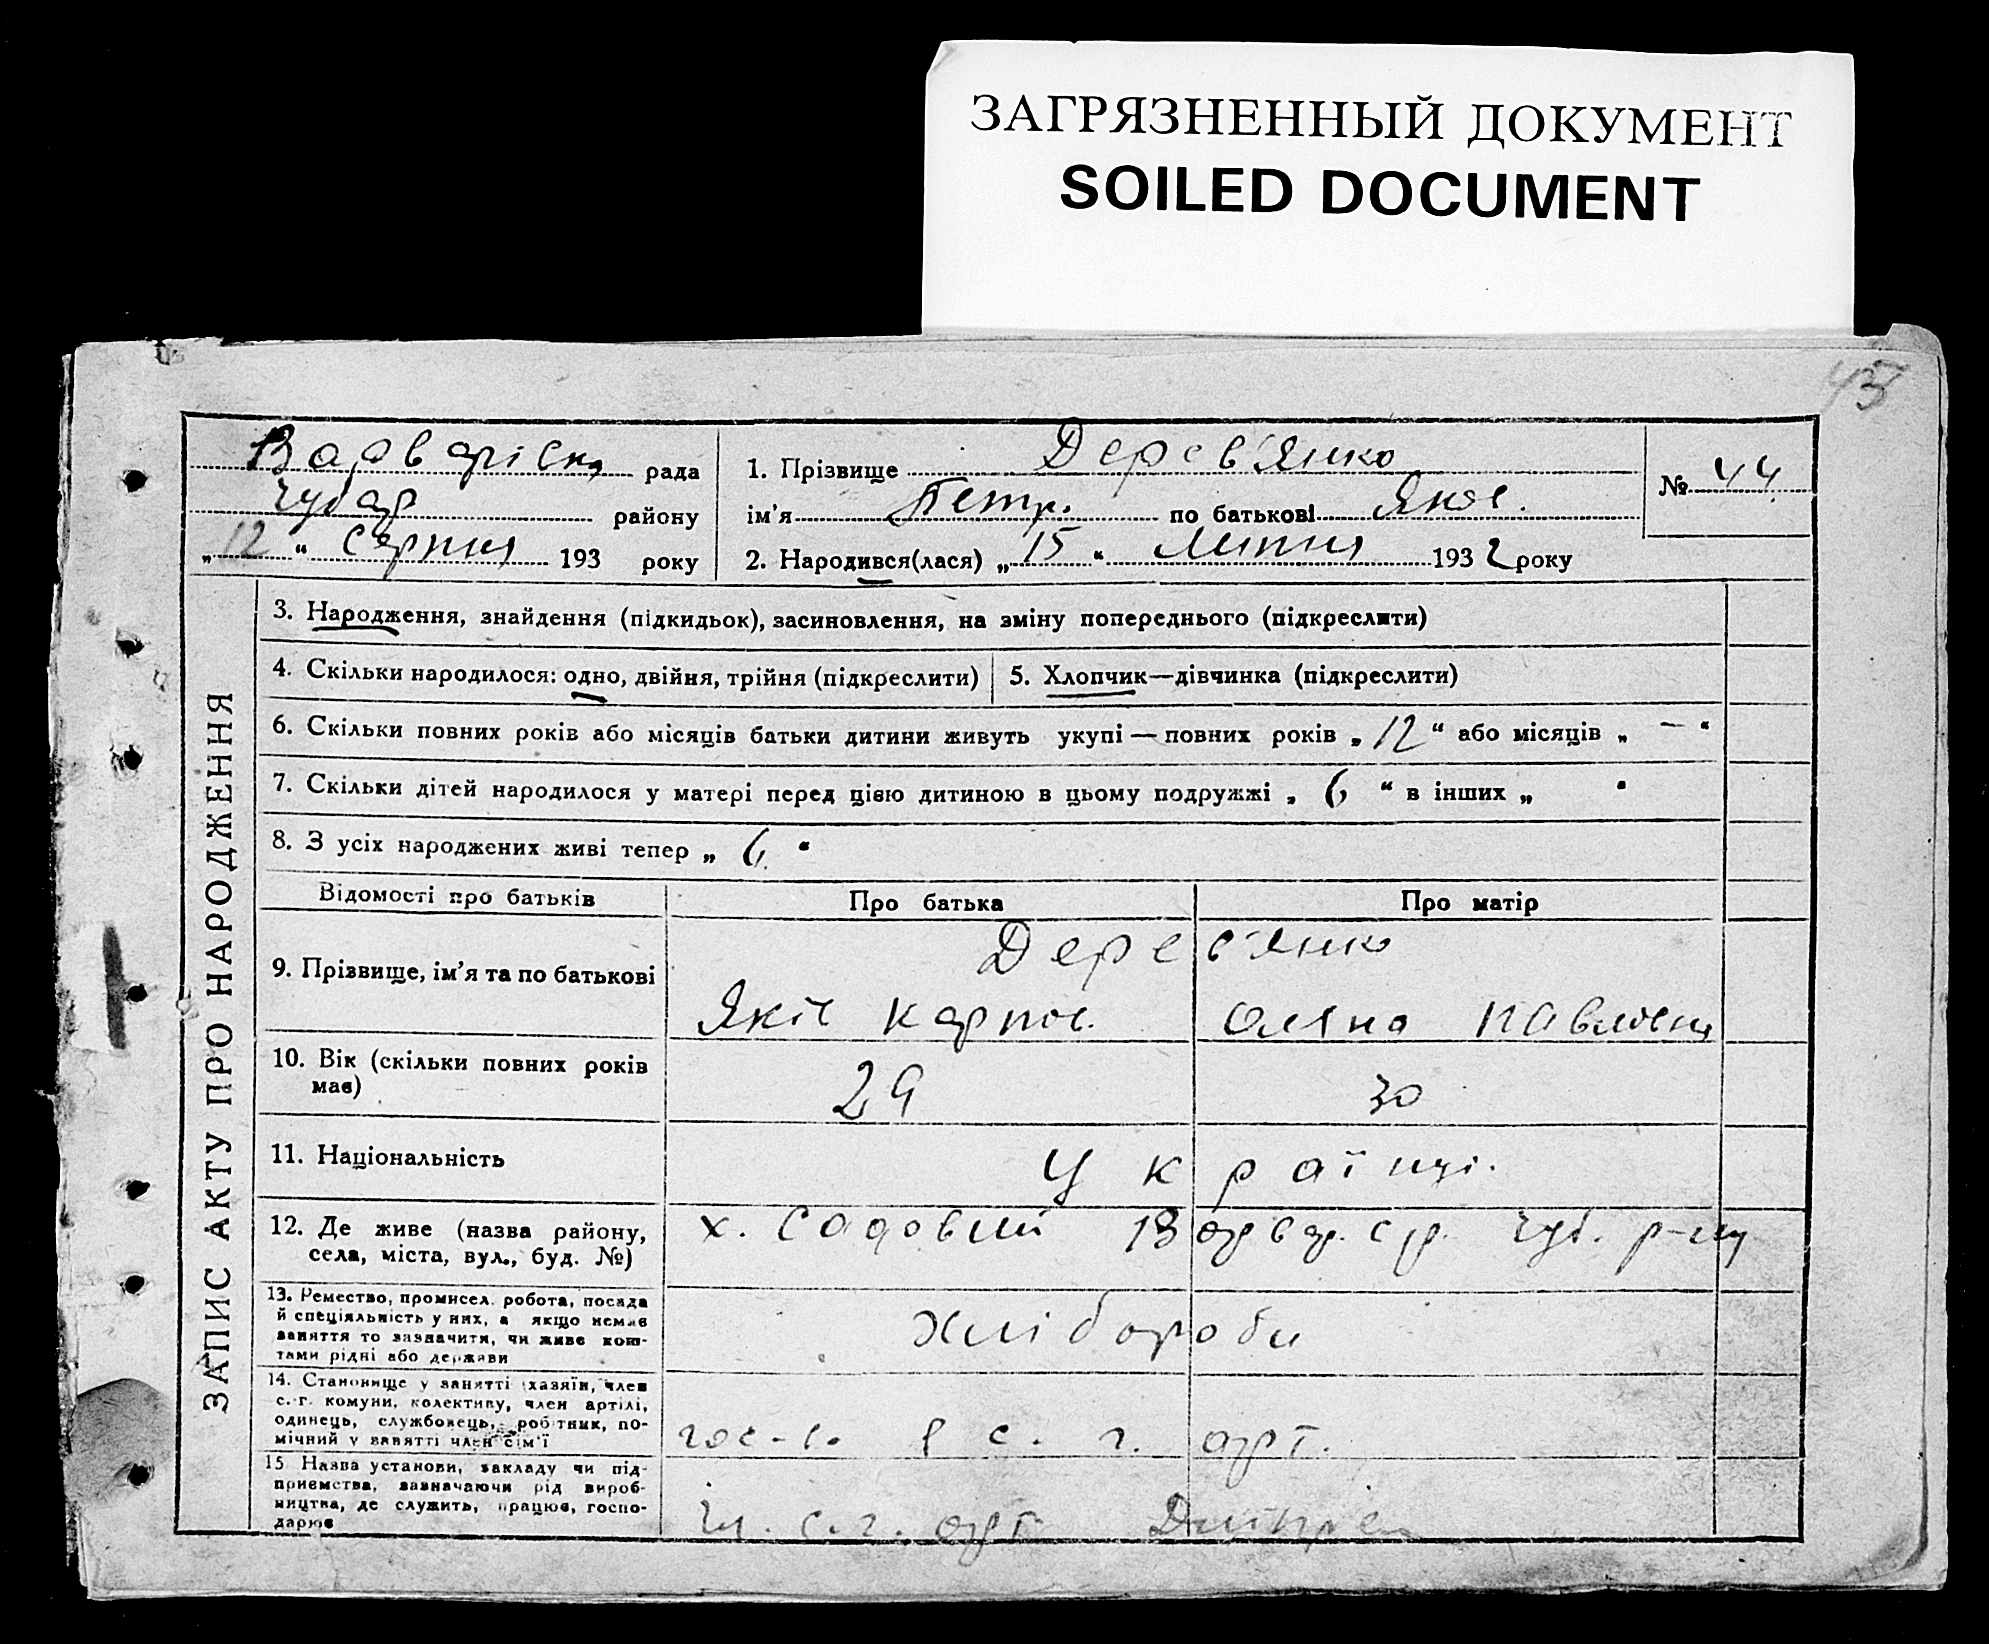 ЗАГРЯЗНЕННЫЙ ДОКУМЕНТ
SOILED DOCUMENT
45
Варварівськ рада
Чубар району
„12“ Серпня 193 року
1. Прізвище Дерев'янко
ім'я Петр. по батькові Яков.
2. Народився(лася) „15“ Липня 1932 року
№ 44
ЗАПИС АКТУ ПРО НАРОДЖЕННЯ
3. Народження, знайдення (підкидьок), засиновлення, на зміну попереднього (підкреслити)
4. Скільки народилося: одно, двійня, трійня (підкреслити)
5. Хлопчик—дівчинка (підкреслити)
6. Скільки повних років або місяців батьки дитини живуть укупі — повних років „12“ або місяців „ — “
7. Скільки дітей народилося у матері перед цією дитиною в цьому подружжі „6“ в інших „ “
8. З усіх народжених живі тепер „6“
Відомості про батьків Про батька Про матір
9. Прізвище, ім'я та по батькові
Дерев'янко
Яків Карпов. Оляна Павловна
10. Вік (скільки повних років має)
29 30
11. Національність
Українці.
12. Де живе (назва району,
села, міста, вул., буд. №)
х. Садовий Варвар. с/р. Чуб. р-ну
13. Ремество, промисел. робота, посада
й спеціяльність у них, а якщо немає
заняття то зазначити, чи живе кош-
тами рідні або держави
Хлібороби
14. Становище у занятті (хазяїн, член
с.-г. комуни, колективу, член артілі,
одинець, службовець, робітник, по-
мічний у занятті член сім'ї
с. г. арт.
15 Назва установи, закладу чи під-
приємства, зазначаючи рід вироб-
ництва, де служить, працює, госпо-
дарює
с. г. арт